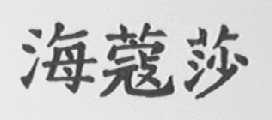 海蔻莎